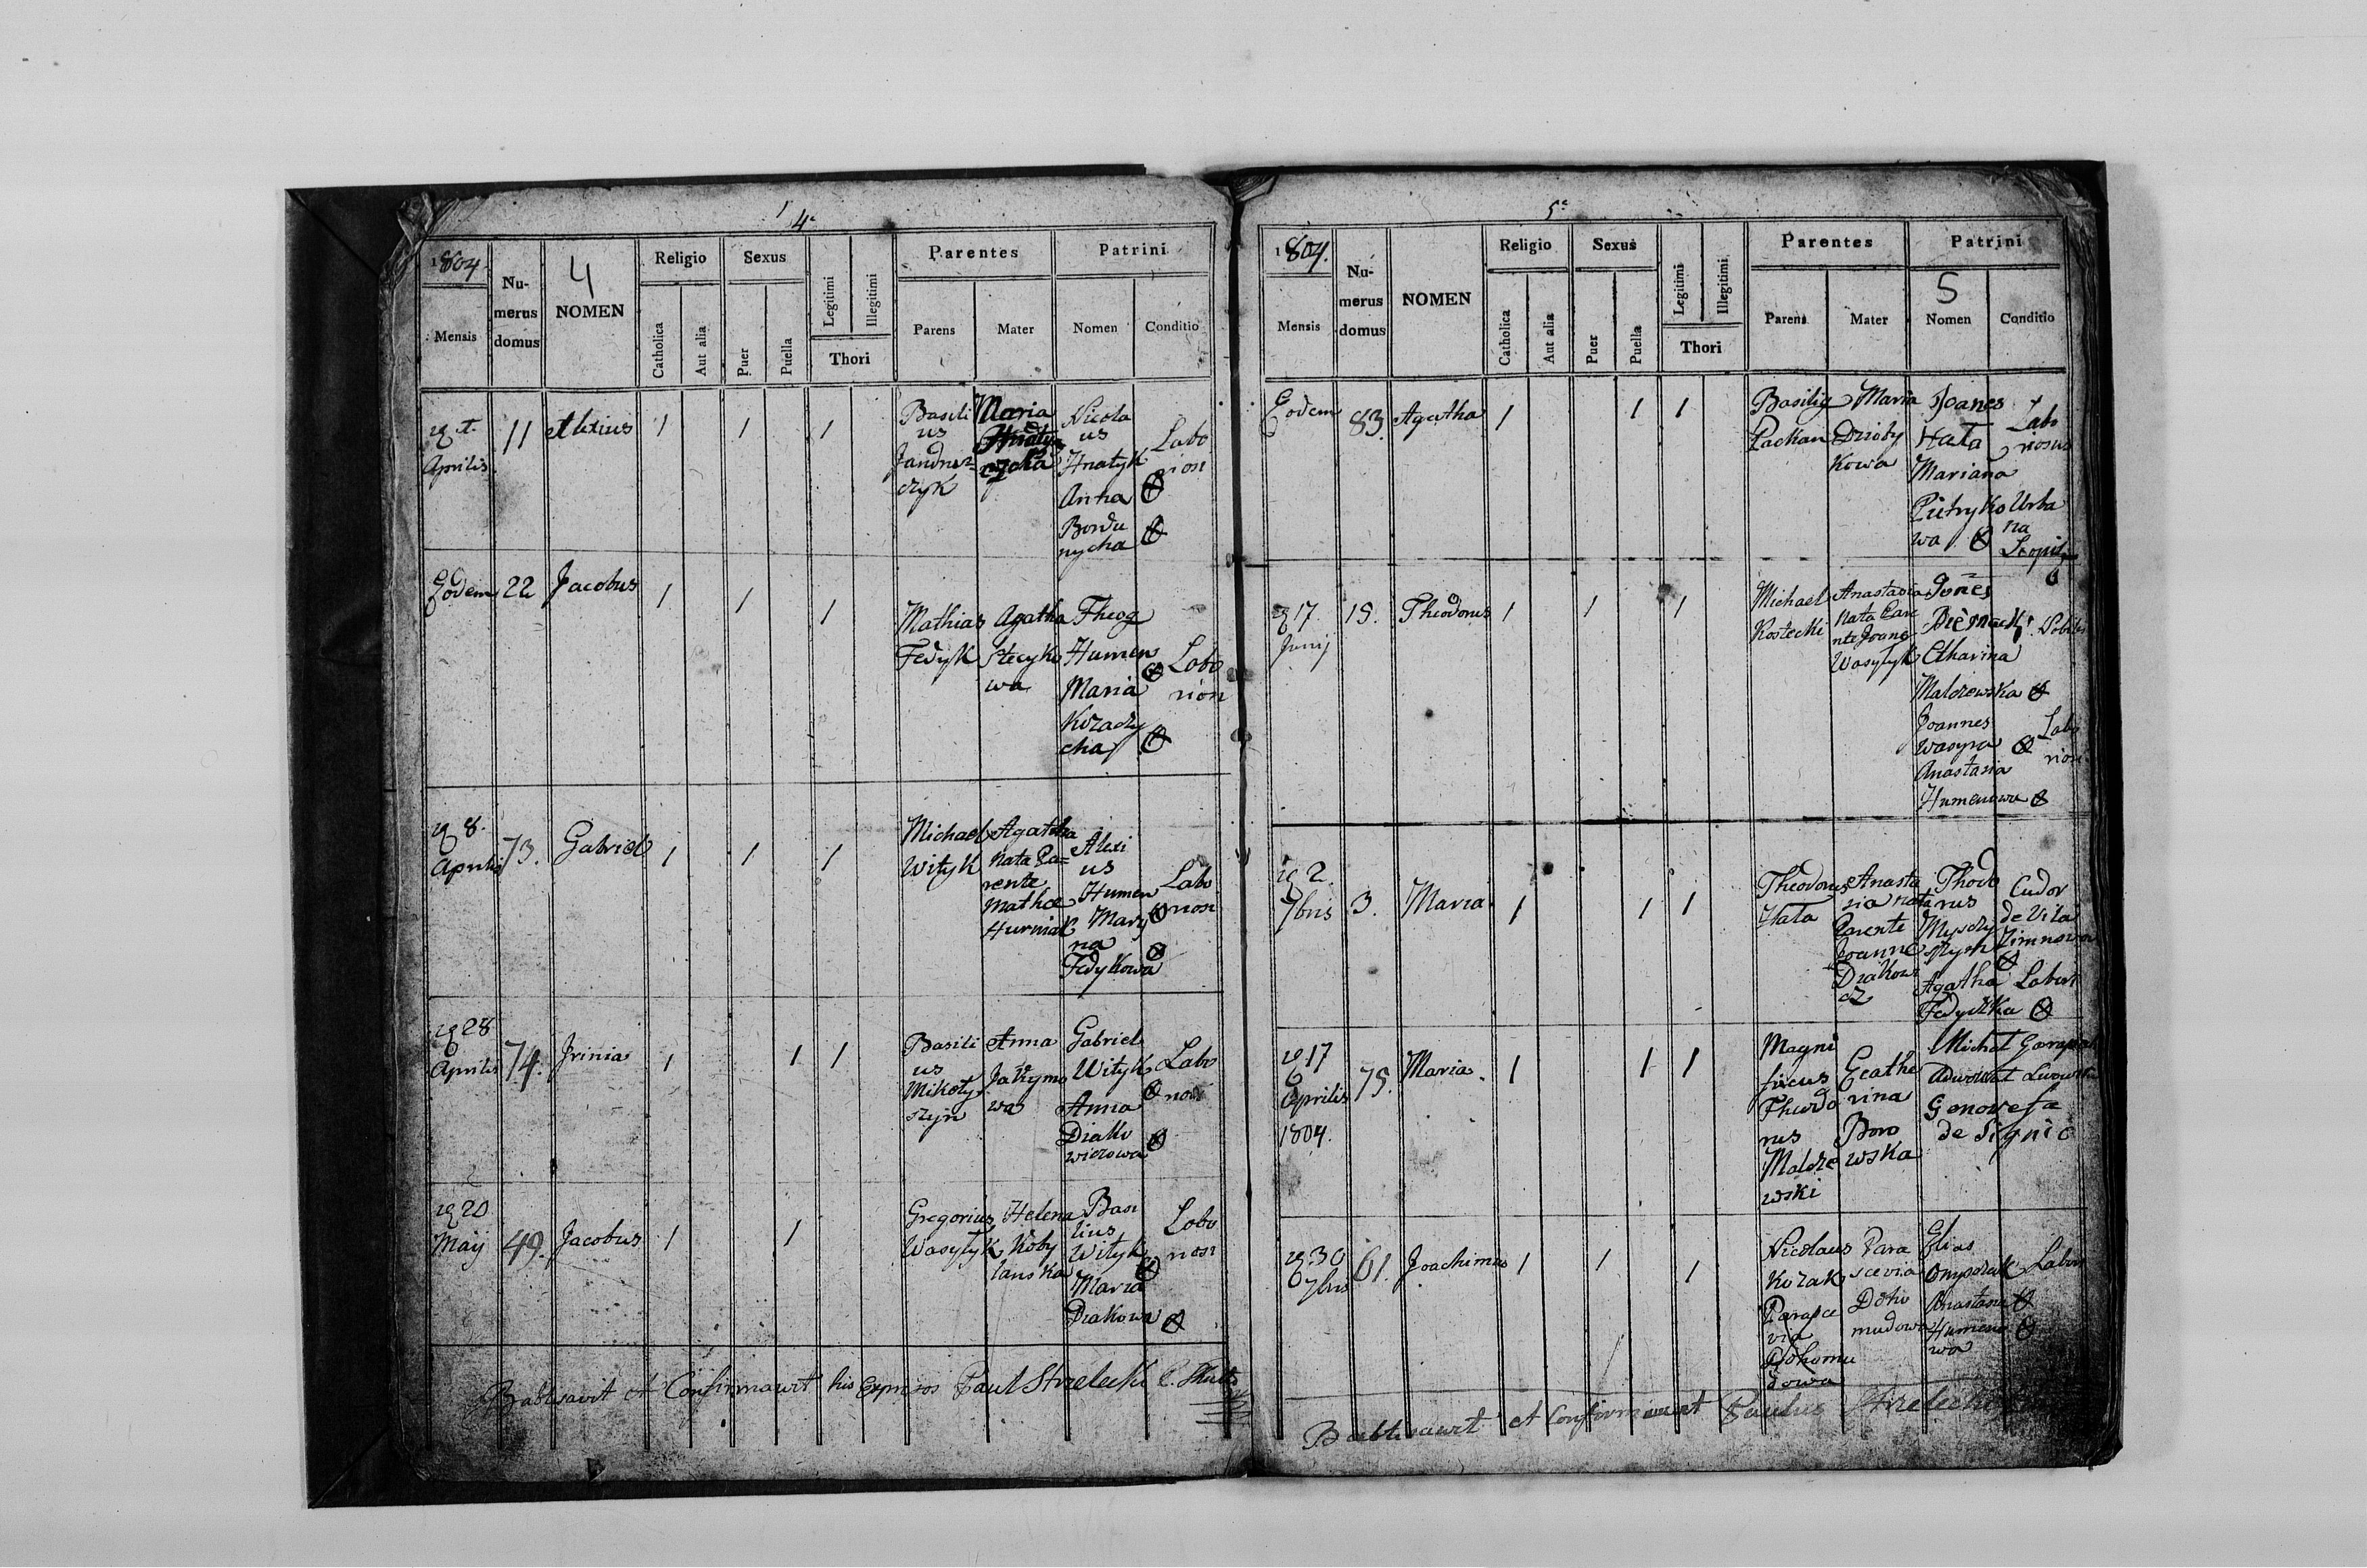 4
1804.
Mensis
Nu-
merus
domus
4
NOMEN
Religio
Catholica
Aut alia
Sexus
Puer
Puella
Legitimi
Illegitimi
Thori
Parentes
Parens
Mater
Patrini
Nomen
Conditio
Aprilis
11
Alexius
1
1
1
Basili
us
Maria
Nicola
us
Hnatyk
Anna
Bordu
nycha
Labo
riosi
Eodem
22
Jacobus
1
1
1
Mathias
Fedyk
Agatha
Stecyko
wa
Theog
Humen
Maria
Kozaczy
cha
Labo
riosi
8.
Aprilis
73.
Gabriel
1
1
1
Michael
Wityk
Agatha
Nata Pa=
rente
Mathæ
Hurniak
Alexi
us
Humen
Mary
na
Fedykowa
Labo
riosi
28
Aprilis
74.
Irinia
1
1
1
Basili
us
Mikoły
szyn
Anna
Jakymo
wa
Gabriel
Wityk
Anna
Diako
wiczowa
Labo
riosi
20
Maij
49.
Jacobus
1
1
Gregorius
Wasylyk
Helena
Koby
lanska
Basi
lius
Wityk
Maria
Diakowa
Labo
riosi
Babtisavit et Confirmavit his expresos Paul Strzelecki
5
1804.
Mensis
Nu-
merus
domus
NOMEN
Religio
Catholica
Aut alia
Sexus
Puer
Puella
Legitimi
Illegitimi
Thori
Parentes
Parens
Mater
Patrini
5
Nomen
Conditio
Eodem
83.
Agatha
1
1
1
Basilig
Packan
Maria
Dzioby
kowa
Joanes
Hata
Mariana
Pietryko
wa
Labo
riosus
Urba
na
Eodem
17.
Junij
15.
Theodorus
1
1
1
Michael
Kostecki
Anastasia
Nata Pare
nte Joane
Wasylyk
Joñes
Biernacki
Catharina
Malczewska
Joannes
Wasyna
Anastasia
Humenowa
Nobilis
Labo
riosi
2
7bris
3.
Maria
1
1
1
Theodorus
Hata
Anasta
sia nata
Parente
Joanne
Diakow
cz
Thodo
rus
Agatha
Fedyczka
Cudor
de Vila
Zimnowoda
Labori
17
Aprilis
1804.
75.
Maria
1
1
1
Magni
ficus
Theodo
rus
Malcze
wski
Ecathe
rina
Boro
wska
Michał
Adwokat Lwowski
Genowefa
de Signio
30
7bris
61.
Joachimus
1
1
1
Nicolaus
Kozak
Parasce
via
Dohomu
dowa
Para
scevia
Doho
mudowa
Elias
Anastasia
Humeno
wa
Labori
Babtisavit et Confirmavit Paulus Strzelecki